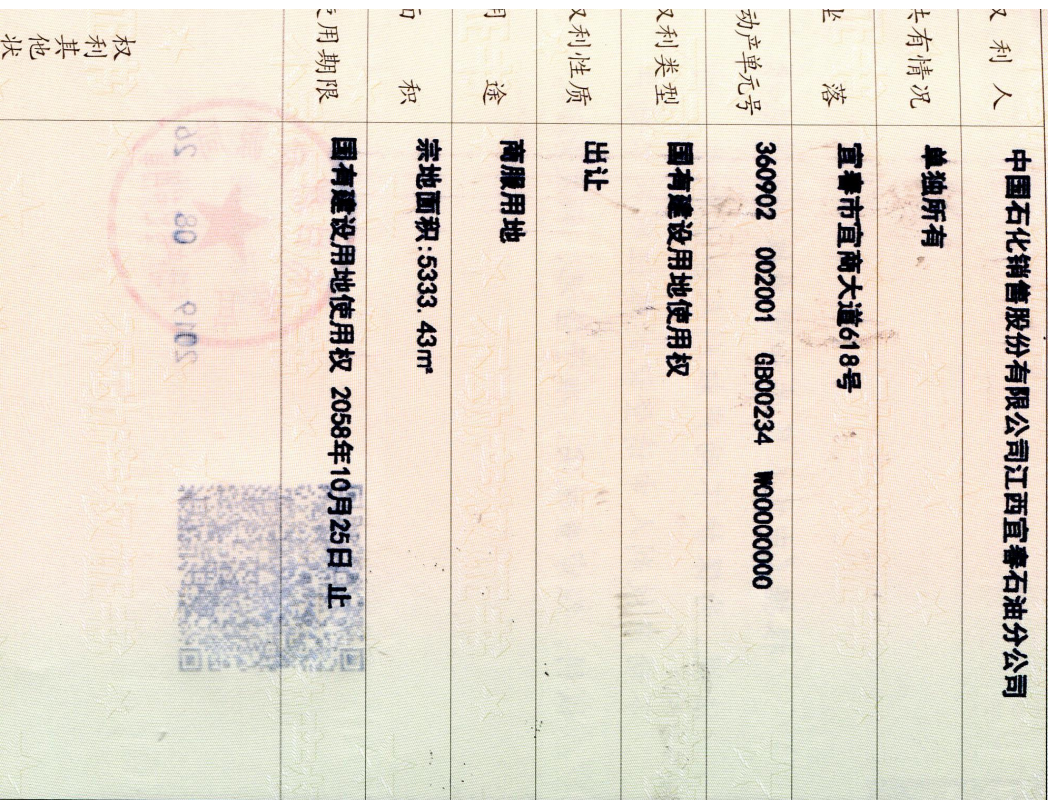 权利人 中国石化销售股份有限公司江西宜春石油分公司
共有情况 单独所有
坐落 宜春市宜商大道618号
动产单元号 360902 002001 GB00234 W00000000
权利类型 国有建设用地使用权
权利性质 出让
用途 商服用地
面积 宗地面积:5333.43㎡
使用期限 国有建设用地使用权 2058年10月25日 止
权利其他状
2019 08 26